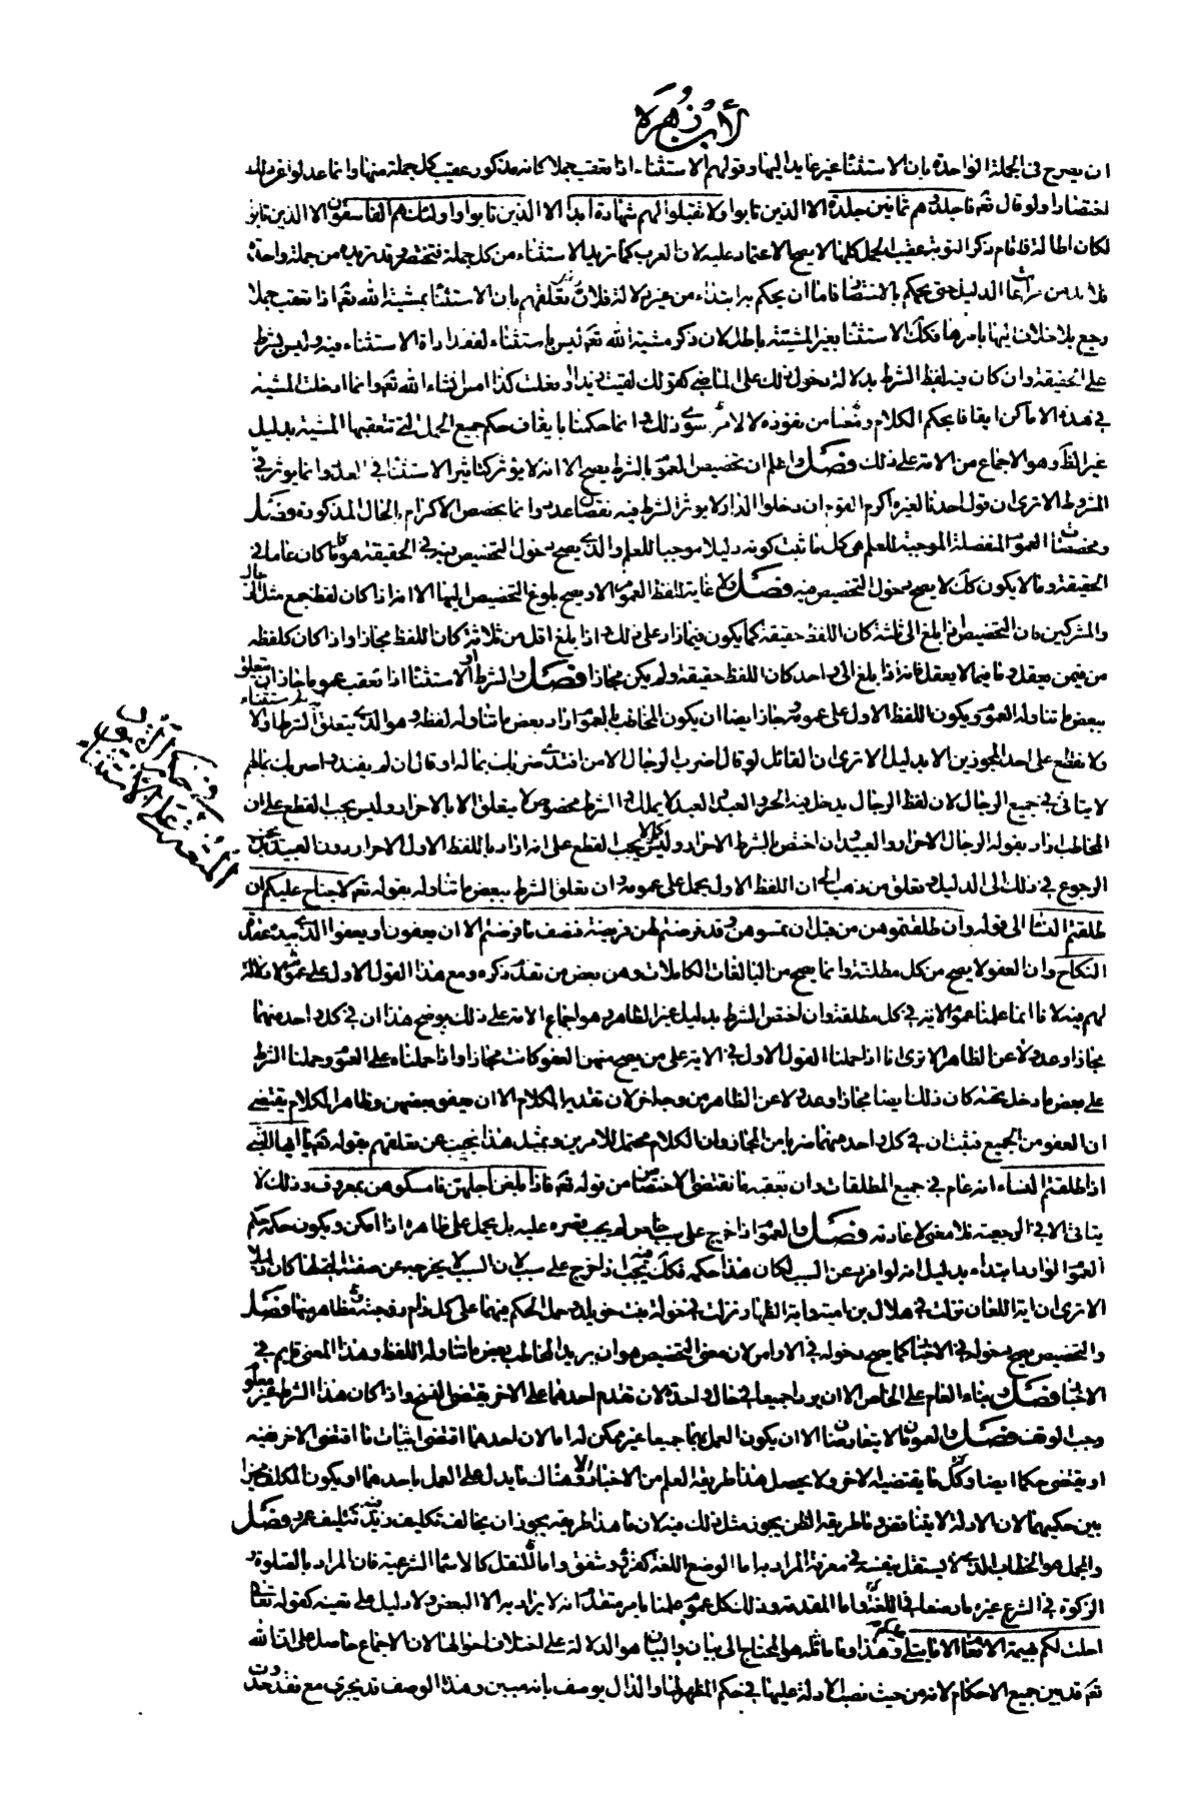 لأبن زهرة
ان يصرح في الجملة الواحدة بان الاستثنا غير عايد اليها وقولهم الاستثناء اذا تعقب جملا كانه مذكور عقيب كل جملة منها وانما عدلوا عن ذلك
اختصارا ولو قال تعم فاجلدوهم ثمانين جلدة الا الذين تابوا ولا تقبلوا لهم شهادة ابدا الا الذين تابوا واولئك هم الفاسقون الا الذين تابوا
لكان اطالة فاقام ذكر التوبة عقيب الجمل كلها لا يصح الاعتماد عليه لان العرب كما تريد الاستثناء من كل جملة فتختصر وقد تريده من جملة واحدة
فلا بد من الدليل حتى يحكم بالاقتضا فاما ان يحكم به ابتداء من غير دلالة فلا تعلقهم بان الاستثنا بمشية الله تعم اذا تعقب جملا
رجع بلا خلاف اليها باسرها فكك الاستثنا بغير المشيئة باطل لان ذكر مشية الله تعم ليس باستثناء لفقد اداة الاستثناء فيه وليس بشرط
على الحقيقة وان كان فيه لفظ الشرط بدلالة دخول ذلك على الماضي كقولك لقيت زيدا وفعلت كذا امس انشاء الله تعم وانما دخلت المشية
في هذه الاماكن ايقافا بحكم الكلام ومنعا من نفوذه لا لامر سوى ذلك وانما حكمنا بايقاف حكم جميع الجمل التي تتعقبها المشية بدليل
غير الظ وهو الاجماع من الامة على ذلك فصل واعلم ان تخصيص العموم بالشرط يصح الا انه لا يؤثر كتاثير الاستثنا في وانما يوثر في
المشروط الا ترى ان قول احدنا لغيره اكرم القوم ان دخلوا الدار لا يوثر الشرط فيه نقصا عدد وانما يخصص الاكرام بالحال المذكورة فصل
ومخصصات العموم المنفصلة الموجبة للعلم هو كل ما ثبت كونه دليلا موجبا للعلم والذي يصح دخول التخصيص فيه في الحقيقة هو ما كان عاما في
الحقيقة وما لا يكون كك لا يصح دخول التخصيص فيه فصل لا غاية للفظ العموم الا ويصح بلوغ التخصيص اليها الا انه اذا كان لفظ جمع مثل
والمشركين فان التخصيص اذا بلغ الى ثلثة كان اللفظ حقيقة كما يكون فيما زاد على ذلك واذا بلغ اقل من ثلاثة كان اللفظ مجازا واذا كان كلفظه
من فيمن يعقل وما فيما لا يعقل فانه اذا بلغ الى واحد كان اللفظ حقيقة ولم يكن مجازا فصل والشرط او الاستثنا اذا تعقب عموما جاز ان يتعلق
ببعض ما تناوله العموم ويكون اللفظ الاول على عمومه وجاز ايضا ان يكون المخاطب بالعموم اراد بعض ما تناوله لفظه وهو الذي يتعلق الشرط او الاستثناء به
ولا نقطع على احد المجوزين الا بدليل الا ترى ان القائل لو قال اضرب الرجال الا من افتدى ضربك بماله او قال ان لم يفتدوا ضربك بمالهم
لا يتاتى في جميع الرجال لان لفظ الرجال يدخل فيه الحر والعبد والعبد لا يملك والشرط مخصوص لا يتعلق الا بالاحرار وليس يجب القطع على ان
المخاطب اراد بقوله الرجال الاحرار والعبيد وان اختص بالشرط الاحرار وليس يجب القطع على انه اراد باللفظ الاول الاحرار دون العبيد بل يجب
الرجوع في ذلك الى الدليل وتعلق من ذهب الى ان اللفظ الاول يحمل على عمومه وان تعلق الشرط ببعض ما تناوله بقوله تعم لا جناح عليكم ان
طلقتم النسا الى قوله وان طلقتموهن من قبل ان تمسوهن وقد فرضتم لهن فريضة فنصف ما فرضتم الا ان يعفون او يعفوا الذي بيده عقدة
النكاح وان العفو لا يصح من كل مطلقة وانما يصح من البالغات الكاملات وهن بعض من تقدم ذكره ومع هذا القول الاول على عمومه لا دلالة
لهم فيه لانا انما علمنا عموم الاية في كل مطلقة وان اختص الشرط بدليل غير الظاهر وهو اجماع الامة على ذلك يوضح هذا ان في كل واحد منهما
مجازا وعدولا عن الظاهر الا ترى انا اذا حملنا القول الاول في الاية على من يصح منهن العفو كانت مجازا واذا حملناه على العموم وحملنا الشرط
على بعض ما دخل تحته كان ذلك ايضا مجازا وعدولا عن الظاهر من وجه اخر لان تقدير الكلام الا ان يعفو بعضهن وظاهر الكلام يقتضي
ان العفو من الجميع فثبت ان في كل واحد منهما ضربا من المجاز وان الكلام محتمل للامرين وبمثل هذا نجيب عن تعلقهم بقوله تعم يا ايها النبي
اذا طلقتم النساء انه عام في جميع المطلقات وان تعقبه ما يقتضي الاختصاص من قوله تعم فاذا بلغن اجلهن فامسكوهن بمعروف وذلك لا
يتاتى الا في الرجعية فلا معنى لاعادته فصل والعموم اذا خرج على سبب خاص لم يجب قصره عليه بل يحمل على ظاهره اذا امكن ويكون حكمه حكم
العموم الوارد ابتداء بدليل انه لو انفرد عن السبب لكان هذا حكمه فكك يجب اذا خرج على سبب لان السبب لا يخرجه عن صفته التي كان دليلا
الا ترى ان اية اللعان نزلت في هلال بن امية واية الظهار نزلت في خولة بنت خويلد وحمل الحكم فيهما على كل رام زوجته ومظاهر منها فصل
والتخصيص يصح دخوله في الاخبار كما يصح دخوله في الاوامر لان معنى التخصيص هو ان يريد المخاطب بعض ما تناوله اللفظ وهذا المعنى قايم في
الاخبار فصل وبناء العام على الخاص الا ان يردا جميعا في حال واحدة لان تقدم احدهما على الاخر يقتضي النسخ واذا كان هذا الشرط غير معلوم
وجب الوقف فصل والعمومان لا يتعارضان الا ان يكون العمل بهما جميعا غير ممكن لنا اما لان احدهما اقتضى اثبات ما اقتضى الاخر نفيه
او يقتضي حكما ايضاد كل ما يقتضيه الاخر ولا يحصل هذا طريقه العلم من الاخبار وهنا لنا ما يدل على العمل باحدهما او يكون المكلف مخيرا
بين حكيمهما لان الادلة لا يتناقض وما طريقه الظن يجوز مثل ذلك فيه لان ما هذا طريقه يجوز ان يخالف تكليف زيد فيه تكليف عمرو فصل
والمجمل هو الخطاب الذي لا يستقل بنفسه في معرفة المراد به اما لوضع اللغة كقرء وشفق واما للنقل كالاسما الشرعية فان المراد بالصلوة و
الزكوة في الشرع غيره ما وضعا له في اللغة واما المقدمة وذلك كل عموم علمنا بامر متقدم انه لا يراد به الا البعض ولا دليل على تعينه كقوله تعالى
احلت لكم بهيمة الانعام الا ما يتلى عليكم وهذا وما ماثله هو المحتاج الى بيان والبيان هو الدلالة على اختلاف احوالها لان الاجماع حاصل على ان الله
تعم قد بين جميع الاحكام لانه من حيث نصب الادلة عليها في حكم المظهر لها والدال يوصف بانه مبين وهذا الوصف قد يجري مع فقد حدوث